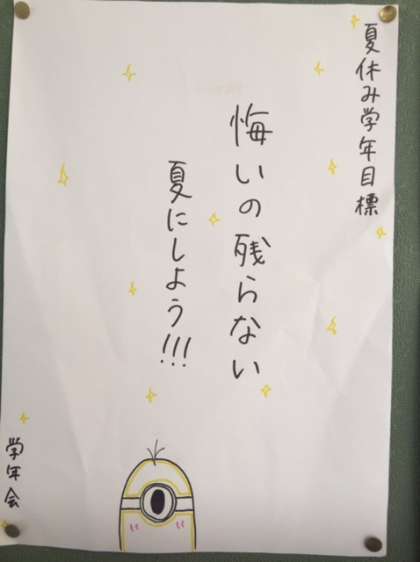 夏休み学年目標
悔いの残らない
夏にしよう!!!
学年会